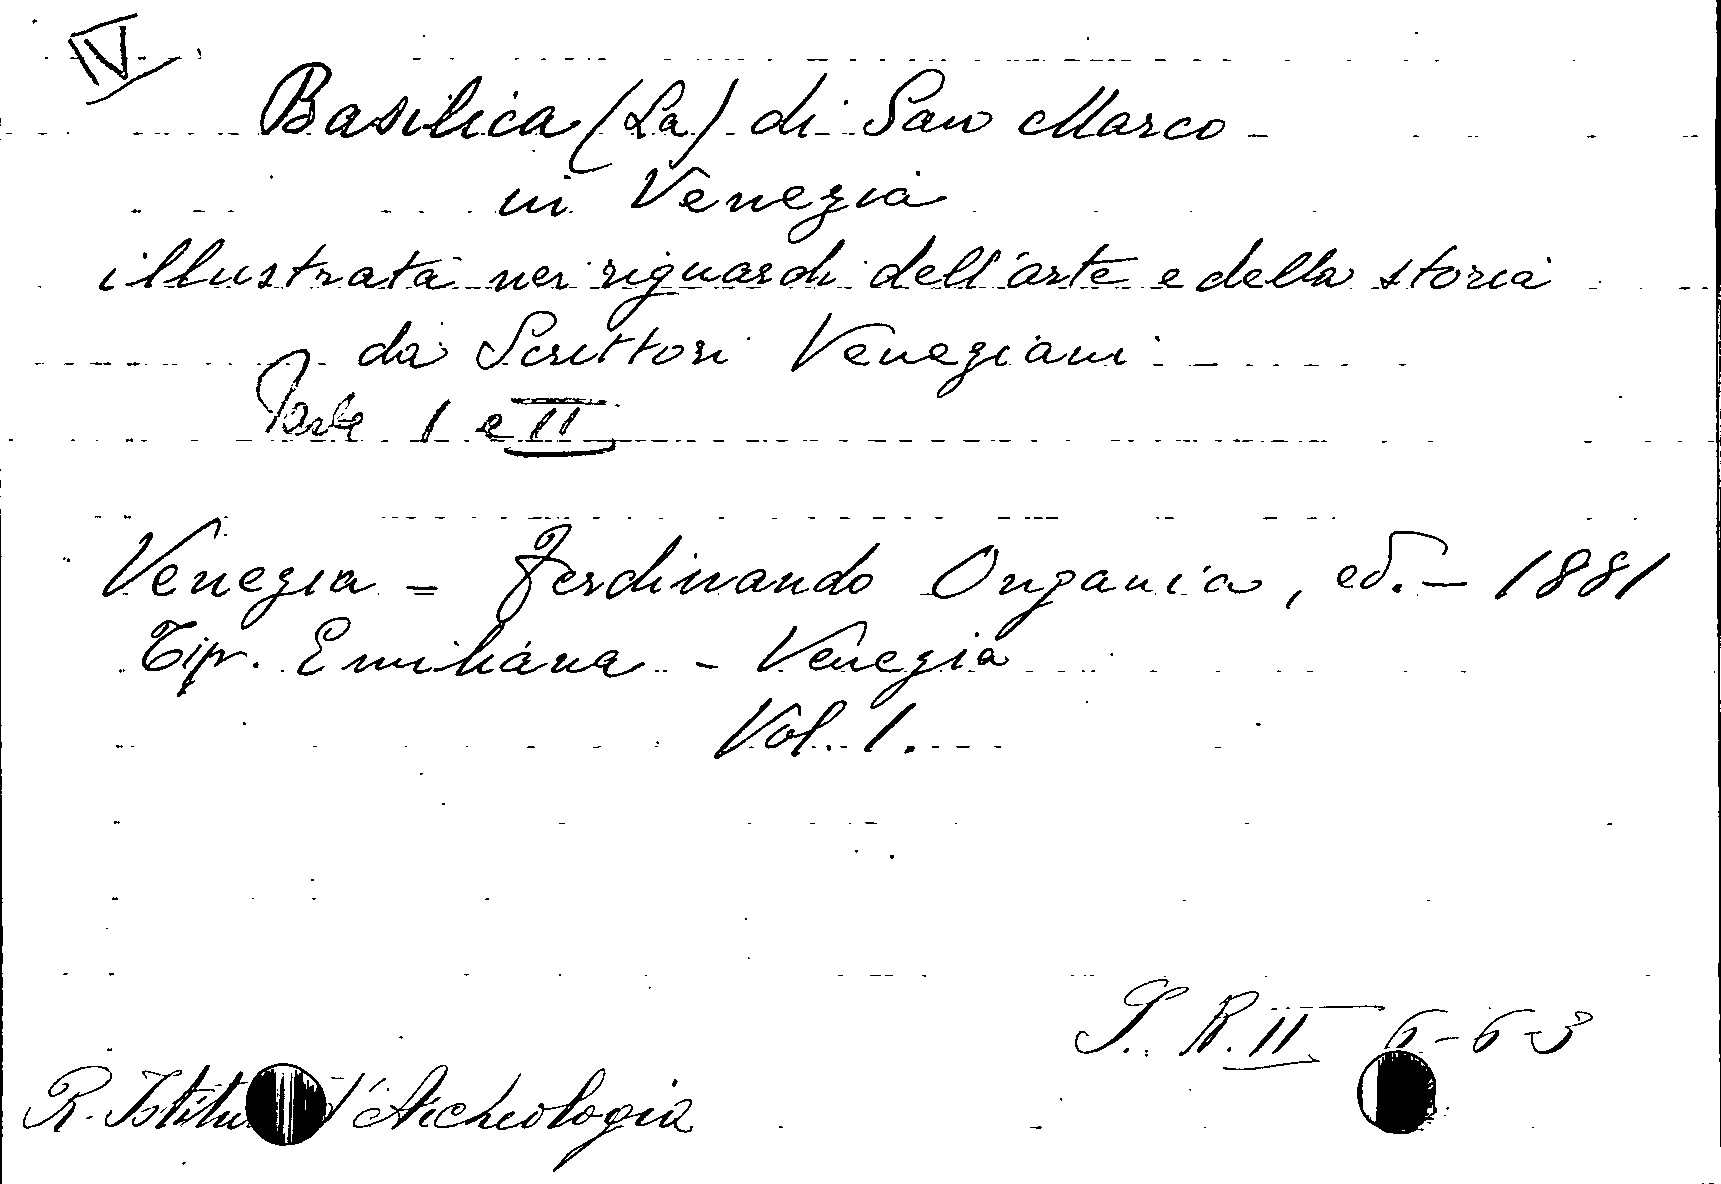 IV
Basilica (La) di San Marco -
in Venezia
illustrata nei riguardi dell'arte e della storia
da Scrittori Veneziani
Parte I e II
Venezia = Ferdinando Ongania, ed. - 1881
Tip. Emiliana - Venezia
Vol. 1.
S. R. II 6-6-3
R. Istitu d'Archeologia